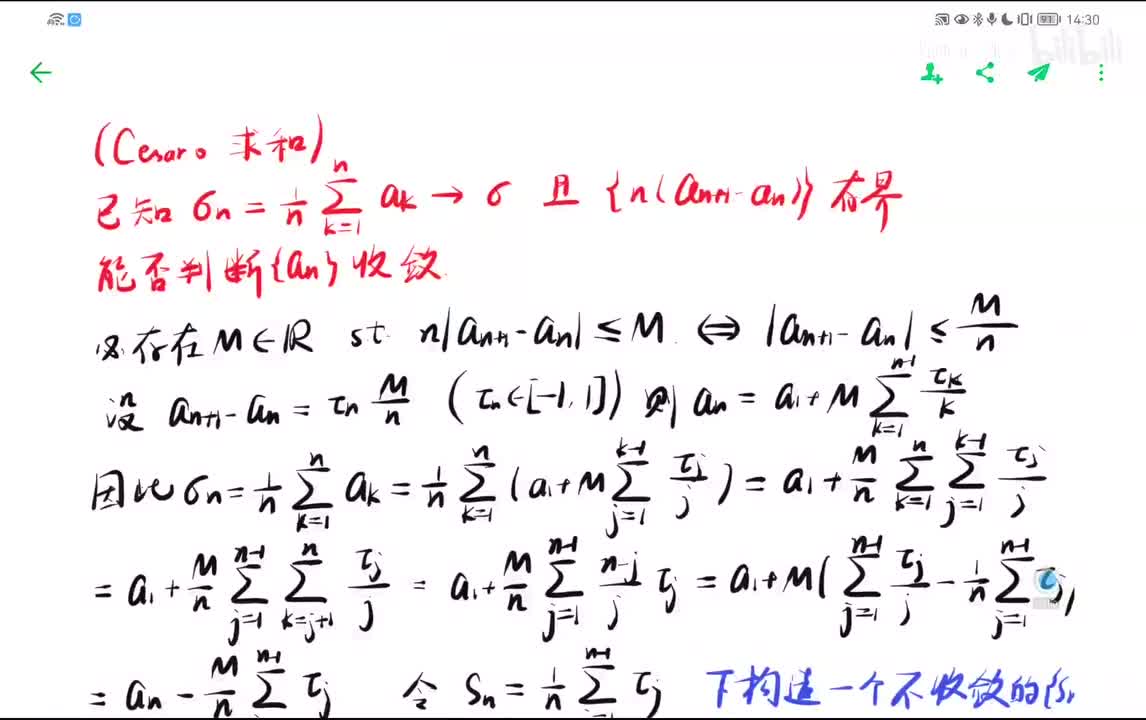 14:30
bilibili
(Cesaro 求和)
已知 σn = 1/n ∑_{k=1}^{n} ak → σ 且 {n(an+1 - an)} 有界
能否判断{an}收敛
必存在 M∈R st. n|an+1 - an| ≤ M. ⇔ |an+1 - an| ≤ M/n
设 an+1 - an = τn M/n (τn∈[-1,1]) 则 an = a1 + M ∑_{k=1}^{n-1} τk/k
因此 σn = 1/n ∑_{k=1}^{n} ak = 1/n ∑_{k=1}^{n} (a1 + M ∑_{j=1}^{k-1} τj/j) = a1 + M/n ∑_{k=1}^{n} ∑_{j=1}^{k-1} τj/j
= a1 + M/n ∑_{j=1}^{n-1} ∑_{k=j+1}^{n} τj/j = a1 + M/n ∑_{j=1}^{n-1} n-j/j τj = a1 + M( ∑_{j=1}^{n-1} τj/j - 1/n ∑_{j=1}^{n-1} τj)
= an - M/n ∑^{n-1} τj 令 Sn = 1/n ∑_{j=1}^{n-1} τj 下构造一个不收敛的{Sn